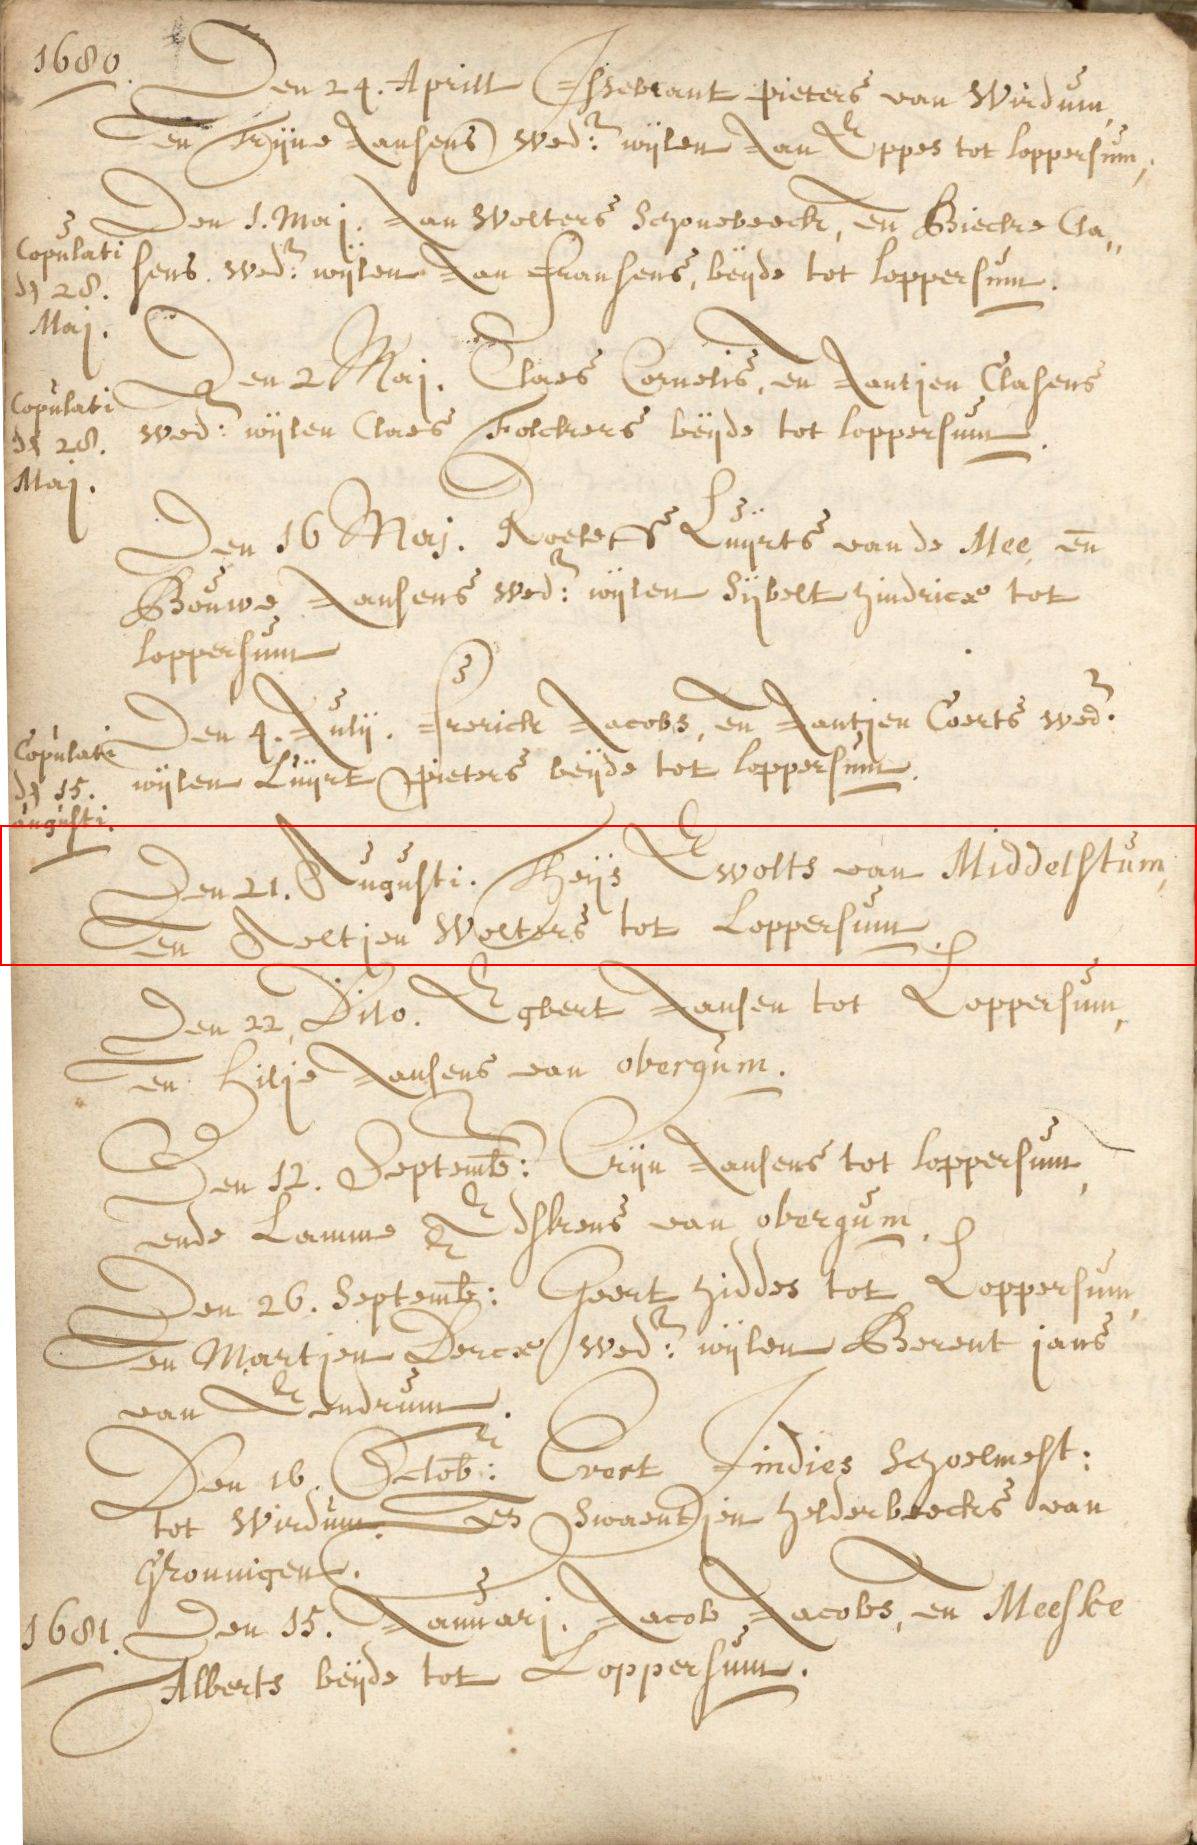 1680.
Den 24. Aprill Issebrant pieters van Wirdum,
en Trijne Jansens wed: wijlen Jan Eppes tot loppersum,
Den 1. Maj. Jan Wolters Schonebeeck, en Biecke Cla„
Copulati
sens. wed: wijlen Jan Fransens, beijde tot loppersum.
28.
Maj.
Den 2 Maj. Claes Cornelis, en Jantjen Clasens
Copulati
wed: wijlen Claes Folckers beijde tot loppersum.
28.
Maj.
Den 16 Maj. Roeleffs Luijrts van de Mee, en
Bouwe Jansens wed: wijlen Sijbelt Hindricx tot
loppersum
Den 4. Julij. Frerick Jacobs, en Jantjen Coerts wed.
Copulati
wijlen Luijrt pieters beijde tot loppersum.
15.
augusti.
Den 21. Augusti. Theijs Ewolts van Middelstum,
en Aeltjen Wolters tot Loppersum.
Den 22 Dito. Egbert Jansen tot Loppersum,
en Hilje Jansens van obergum.
Den 12. Septemb: Crijn Jansens tot loppersum,
ende Lamme van obergum.
Den 26. Septemb: Geert Hiddes tot Loppersum,
en Martjen Dercx wed: wijlen Berent jans
van Eendrum.
Den 16. Octob: Evert Jindies Schoelmest:
tot Wirdum. en Swaentjen Helderbeecks van
Gronnigen.
1681. Den 15. Januarj. Jacob Jacobs, en Meeske
Alberts beijde tot Loppersum.